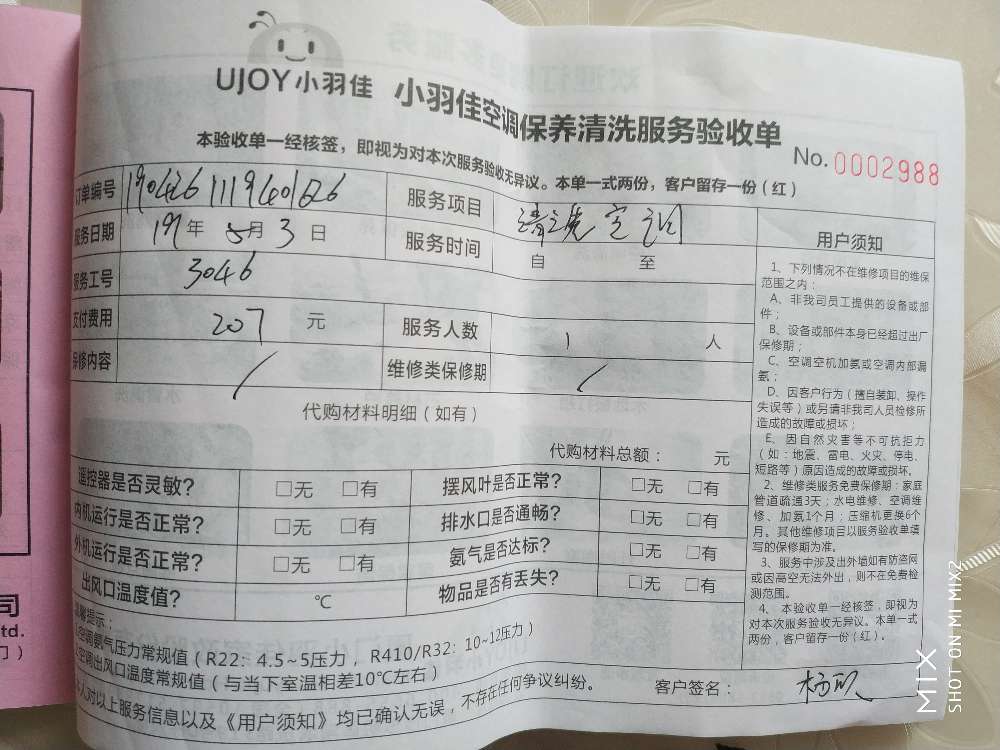 UJOY小羽佳 小羽佳空调保养清洗服务验收单
本验收单一经核签，即视为对本次服务验收无异议。本单一式两份，客户留存一份（红）
No.0002988
订单编号 1904261119401626 服务项目 清洗空调
服务日期 19年5月3日 服务时间 自 至
服务工号 3046
支付费用 207 元 服务人数 1 人
保修内容 / 维修类保修期 /
代购材料明细（如有）
代购材料总额： 元
遥控器是否灵敏？ □无 □有 摆风叶是否正常？ □无 □有
内机运行是否正常？ □无 □有 排水口是否通畅？ □无 □有
外机运行是否正常？ □无 □有 氨气是否达标？ □无 □有
出风口温度值？ ℃ 物品是否有丢失？ □无 □有
温馨提示：
空调氨气压力常规值（R22：4.5~5压力，R410/R32：10~12压力）
空调出风口温度常规值（与当下室温相差10℃左右）
本人对以上服务信息以及《用户须知》均已确认无误，不存在任何争议纠纷。
客户签名：
用户须知
1、下列情况不在维修项目的维保
范围之内：
A、非我司员工提供的设备或部
件；
B、设备或部件本身已经超过出厂
保修期；
C、空调空机加氨或空调内部漏
氨；
D、因客户行为（擅自装卸、操作
失误等）或另请非我司人员检修所
造成的故障或损坏；
E、因自然灾害等不可抗拒力
（如：地震、雷电、火灾、停电、
短路等）原因造成的故障或损坏。
2、维修类服务免费保修期：家庭
管道疏通3天；水电维修、空调维
修、加氨1个月；压缩机更换6个
月。其他维修项目以服务验收单填
写的保修期为准。
3、服务中涉及出外墙如有防盗网
或因高空无法外出，则不在免费检
测范围。
4、本验收单一经核签，即视为
对本次服务验收无异议。本单一式
两份，客户留存一份（红）。
司
td.
门）
MIX
SHOT ON MI MIX2